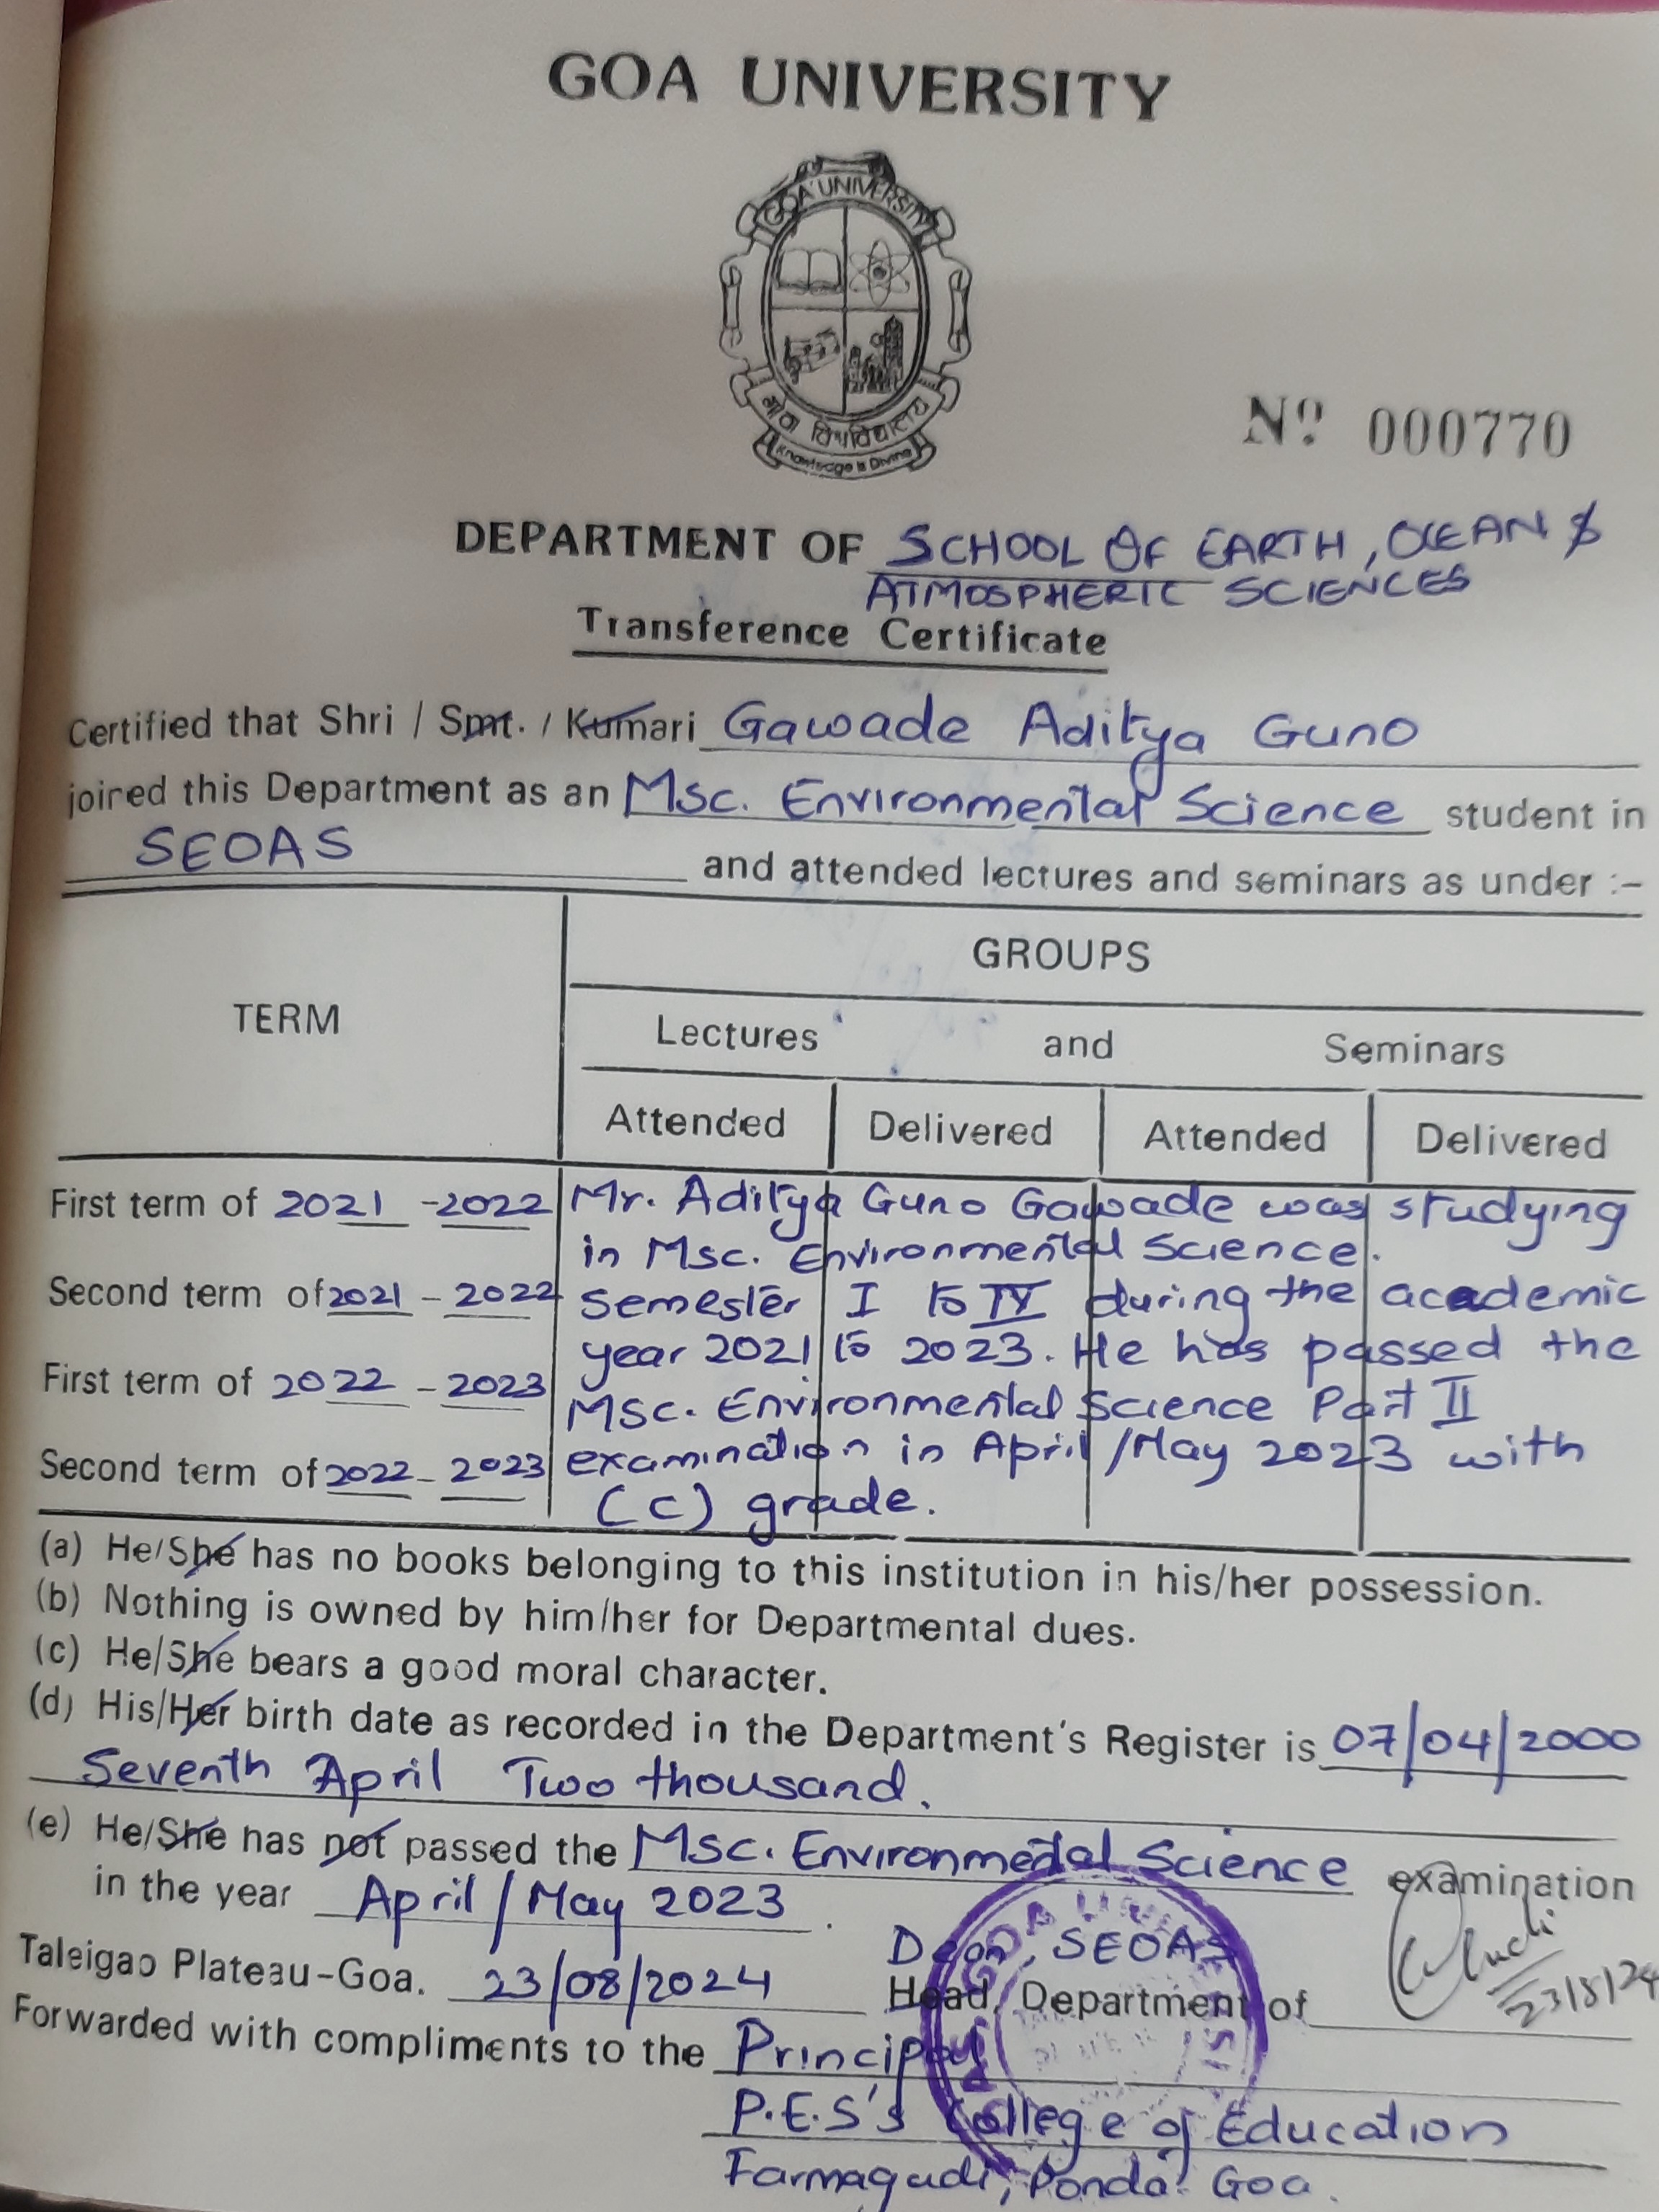 GOA UNIVERSITY
GOA UNIVERSITY
गोवा विश्वविद्यालय
Knowledge is Divine
Nº 000770
DEPARTMENT OF SCHOOL OF EARTH, OCEAN &
ATMOSPHERIC SCIENCES
Transference Certificate
Certified that Shri / Smt. / Kumari Gawade Aditya Guno
joired this Department as an Msc. Environmental Science student in
SEOAS and attended lectures and seminars as under :-
GROUPS
TERM
Lectures and Seminars
Attended Delivered Attended Delivered
First term of 2021 - 2022 Mr. Aditya Guno Gawade was studying
in Msc. Environmental Science.
Second term of 2021 - 2022 semester I to IV during the academic
year 2021 to 2023. He has passed the
First term of 2022 - 2023 Msc. Environmental Science Part II
Second term of 2022 - 2023 examination in April/May 2023 with
(C) grade.
(a) He/She has no books belonging to this institution in his/her possession.
(b) Nothing is owned by him/her for Departmental dues.
(c) He/She bears a good moral character.
(d) His/Her birth date as recorded in the Department's Register is 07/04/2000
Seventh April Two thousand.
(e) He/She has not passed the Msc. Environmental Science examination
in the year April/May 2023.
Dean, SEOAS
23/8/24
Taleigao Plateau-Goa. 23/08/2024 Head, Department of
Forwarded with compliments to the Principal
P.E.S's College of Education
Farmagudi, Ponda Goa.